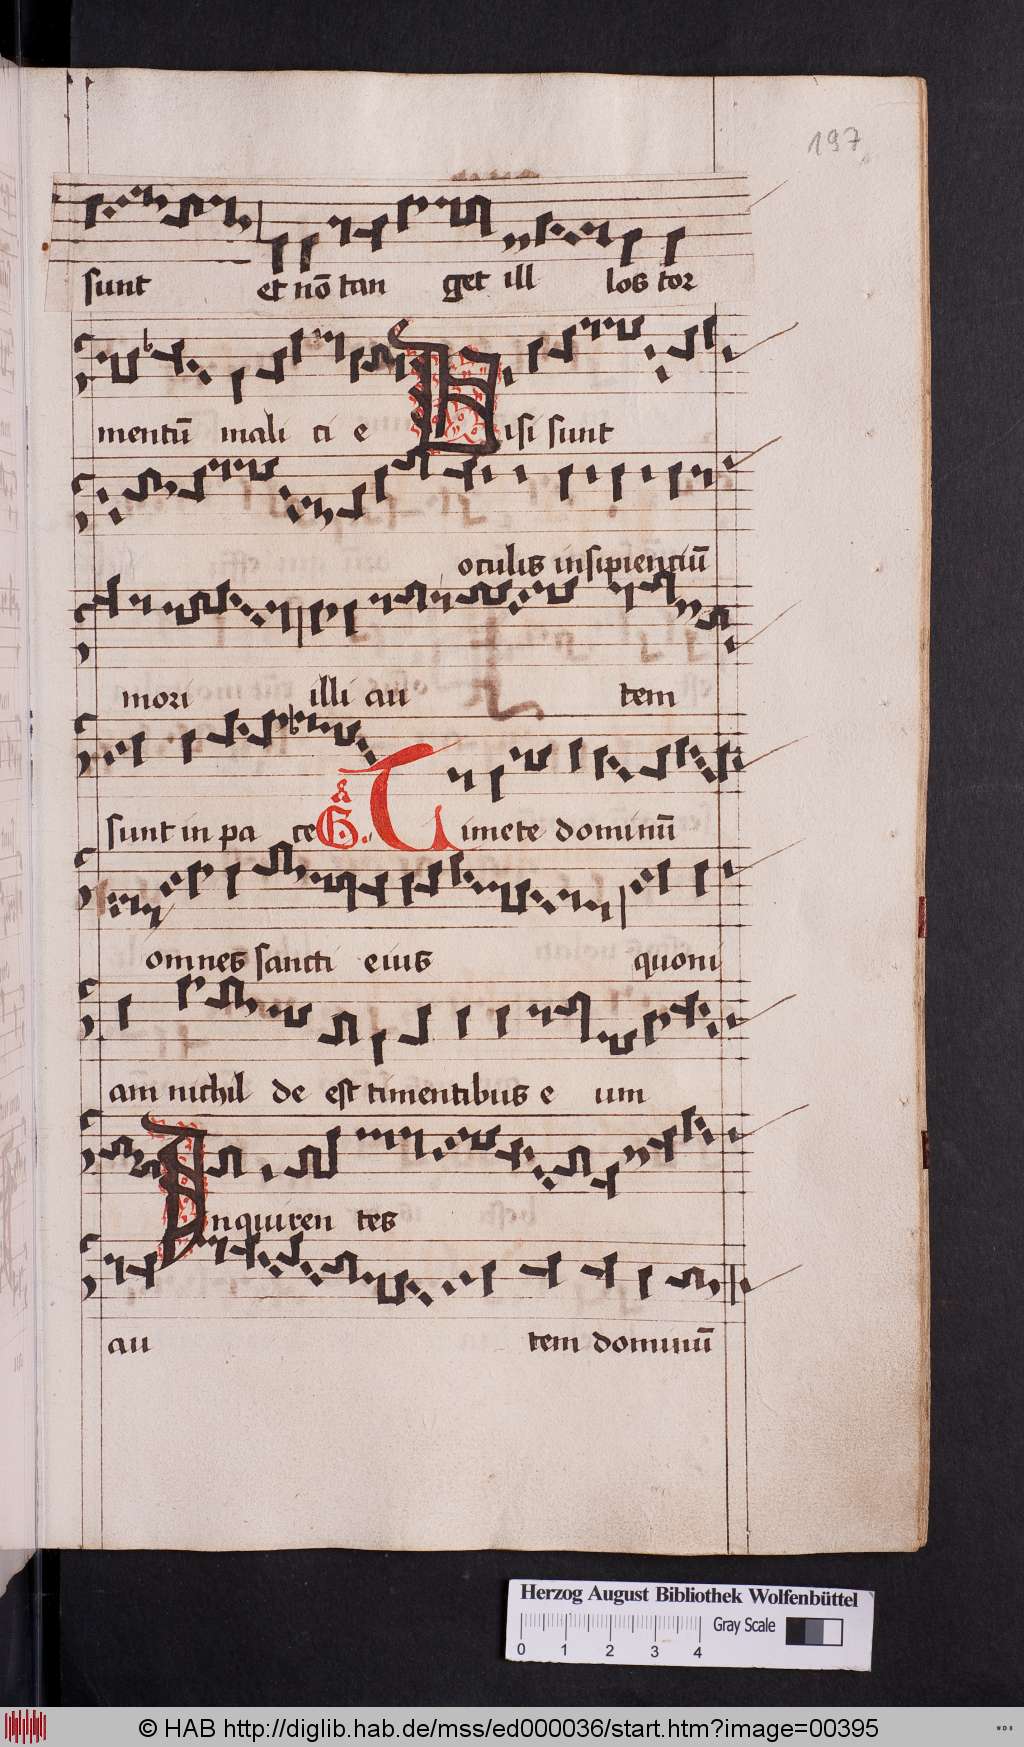 197
sunt et nō tan get ill los tor
mentū mali ci e Uisi sunt
oculis insipientiū
mori illi au tem
sunt in pa ce G. Timete dominū
omnes sancti eius quoni
am nichil de est timentibus e um
Inquiren tes
au tem dominū
Herzog August Bibliothek Wolfenbüttel
Gray Scale
0 1 2 3 4
© HAB http://diglib.hab.de/mss/ed000036/start.htm?image=00395